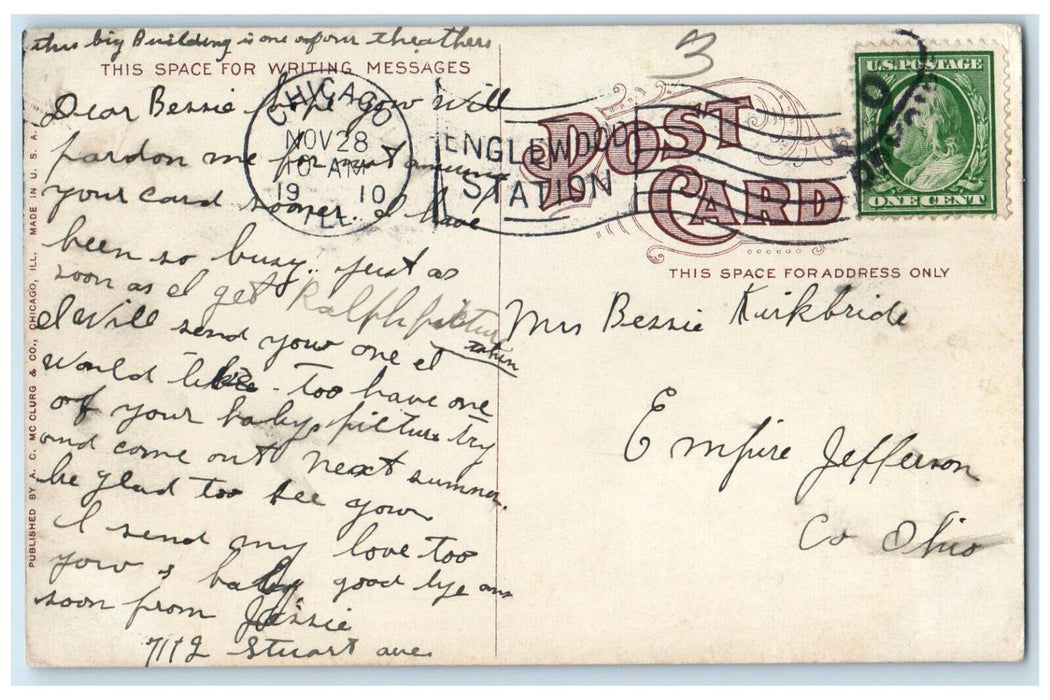 this big Building is one of our theathers
THIS SPACE FOR WRITING MESSAGES
Dear Bessie hope yow will
pardon me for not answring
your card sooner. I have
been so busy. just as
soon as I get Ralph picture
taken
I Will send yow one I
would like - too have one
of your babys picture try
and come out next summer.
be glad too see yow
I send my love too
yow & baby good bye ans
soon from Jessie
Stuart ave.
PUBLISHED BY A. C. MC CLURG & CO., CHICAGO, ILL. MADE IN U. S. A.
CHICAGO
NOV 28
10-AM
19 10
ILL.
ENGLEWOOD
STATION
3
POST
CARD
U.S. POSTAGE
ONE CENT
THIS SPACE FOR ADDRESS ONLY
Mrs Bessie Kirkbride
Empire Jefferson
Co Ohio